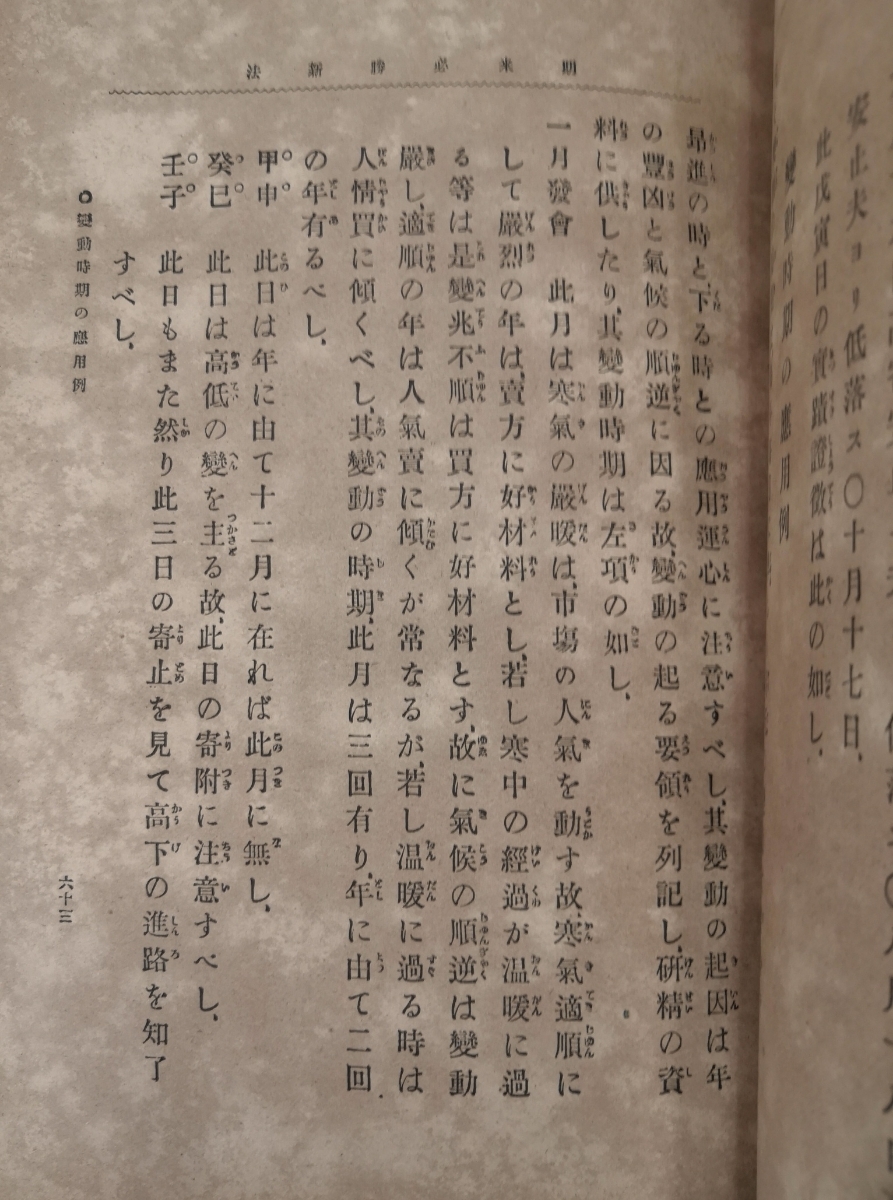 安止夫ヨリ低落ス〇十月十七日、
此戊寅日の實蹟證徴は此の如し、
變動時期の應用例
期米必勝新法
昻進の時と、下る時との應用運心に注意すべし、其變動の起因は年
の豐凶と氣候の順逆に因る故、變動の起る要領を列記し、研精の資
料に供したり、其變動時期は左項の如し、
一月發會　此月は寒氣の嚴暖は、市塲の人氣を動す故、寒氣適順に
して嚴烈の年は、賣方に好材料とし、若し寒中の經過が温暖に過
る等は是變兆不順は買方に好材料とす、故に氣候の順逆は變動
嚴し、適順の年は人氣賣に傾くが常なるが、若し温暖に過る時は
人情買に傾くべし、其變動の時期、此月は三回有り、年に由て二回
の年有るべし、
甲申　此日は年に由て十二月に在れば此月に無し、
癸巳　此日は高低の變を主る故、此日の寄附に注意すべし、
壬子　此日もまた然り此三日の寄止を見て高下の進路を知了
すべし、
變動時期の應用例
六十三